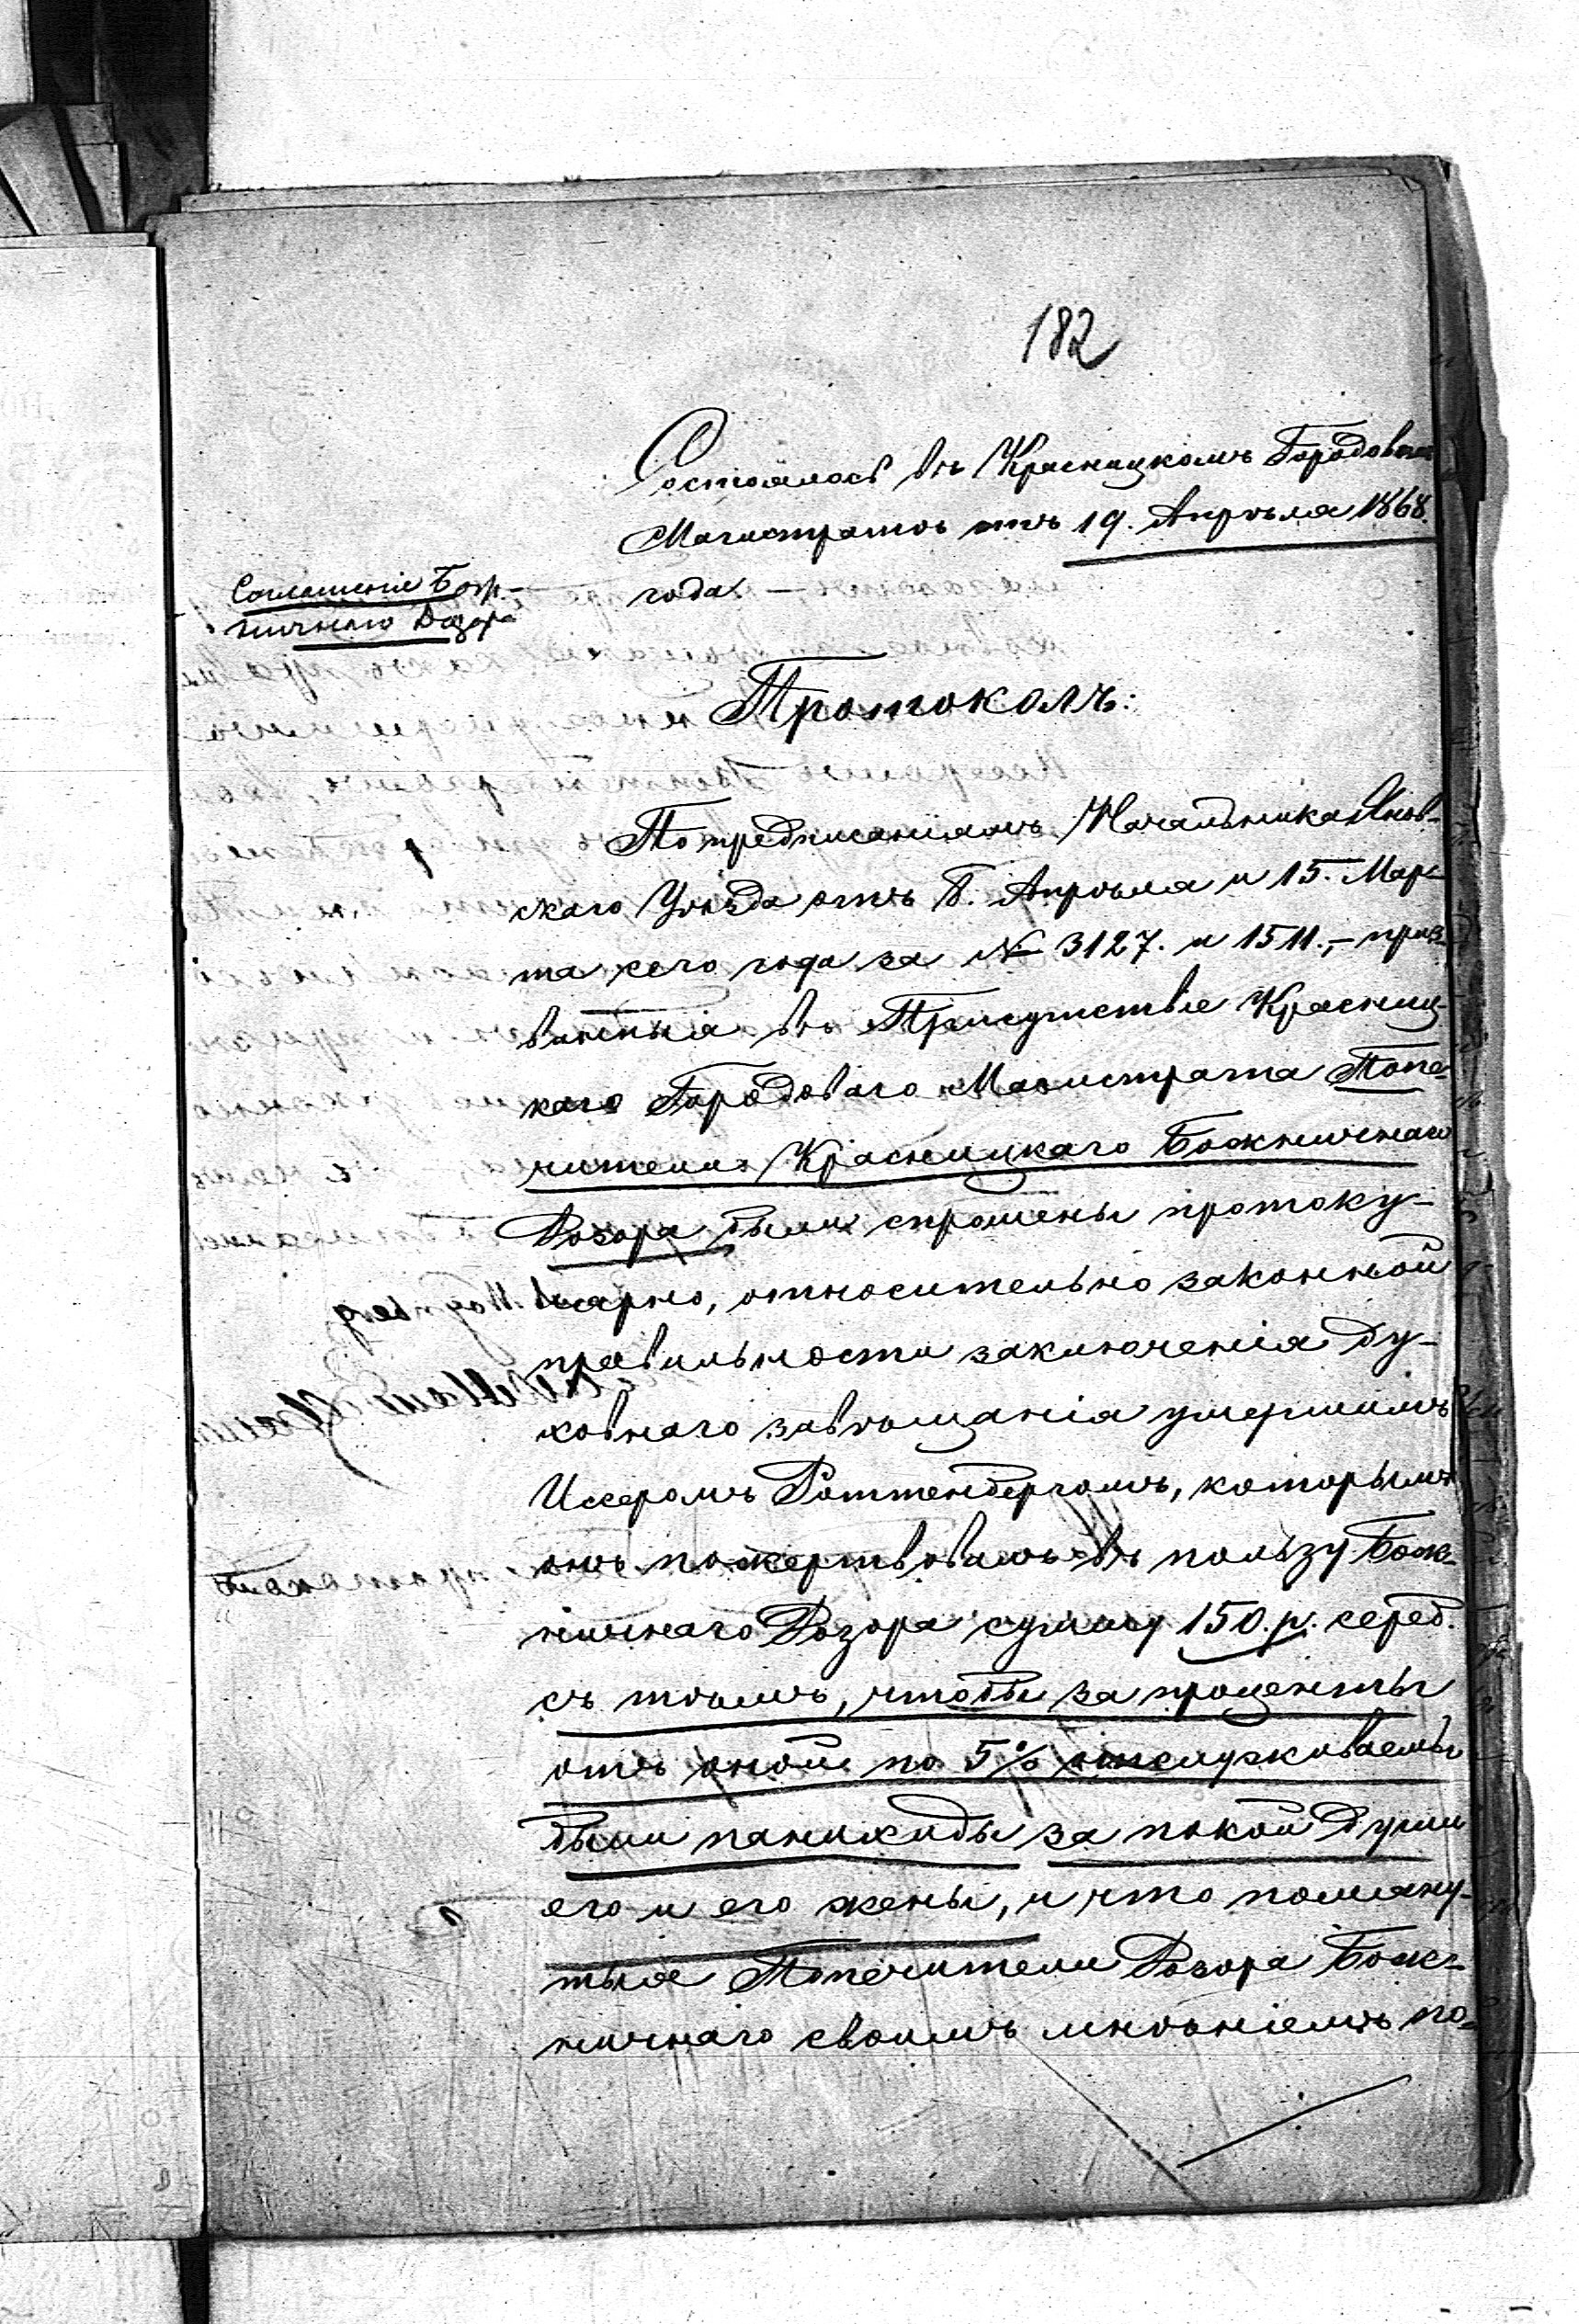 182
Состоялось въ Красницкомъ Городовомъ
Магистратѣ отъ 19. Апрѣля 1868.
года. —
Соглашеніе Бож-
ничнаго Дозора
Протоколъ:
По предписаніямъ Начальника Янов-
скаго Уѣзда отъ 8. Апрѣля и 15. Мар-
та сего года за № 3127. и 1511., – приз-
ванныя въ Присутствіе Красниц-
каго Городоваго Магистрата Попе-
чители Красницкаго Божничнаго
Дозора были спрошены протоку-
лярно, относительно законной
правильности заключенія ду-
ховнаго завѣщанія умершимъ
Иссеромъ Роттенбергомъ, которымъ
онъ пожертвовалъ въ пользу Бож-
ничнаго Дозора сумму 150. р. сереб.
съ тѣмъ, чтобы за проценты
отъ оной по 5% отслуживаемы
были панихиды за покой души
его и его жены, и что помяну-
тыя Попечители Дозора Бож-
ничнаго своимъ мнѣніемъ по-